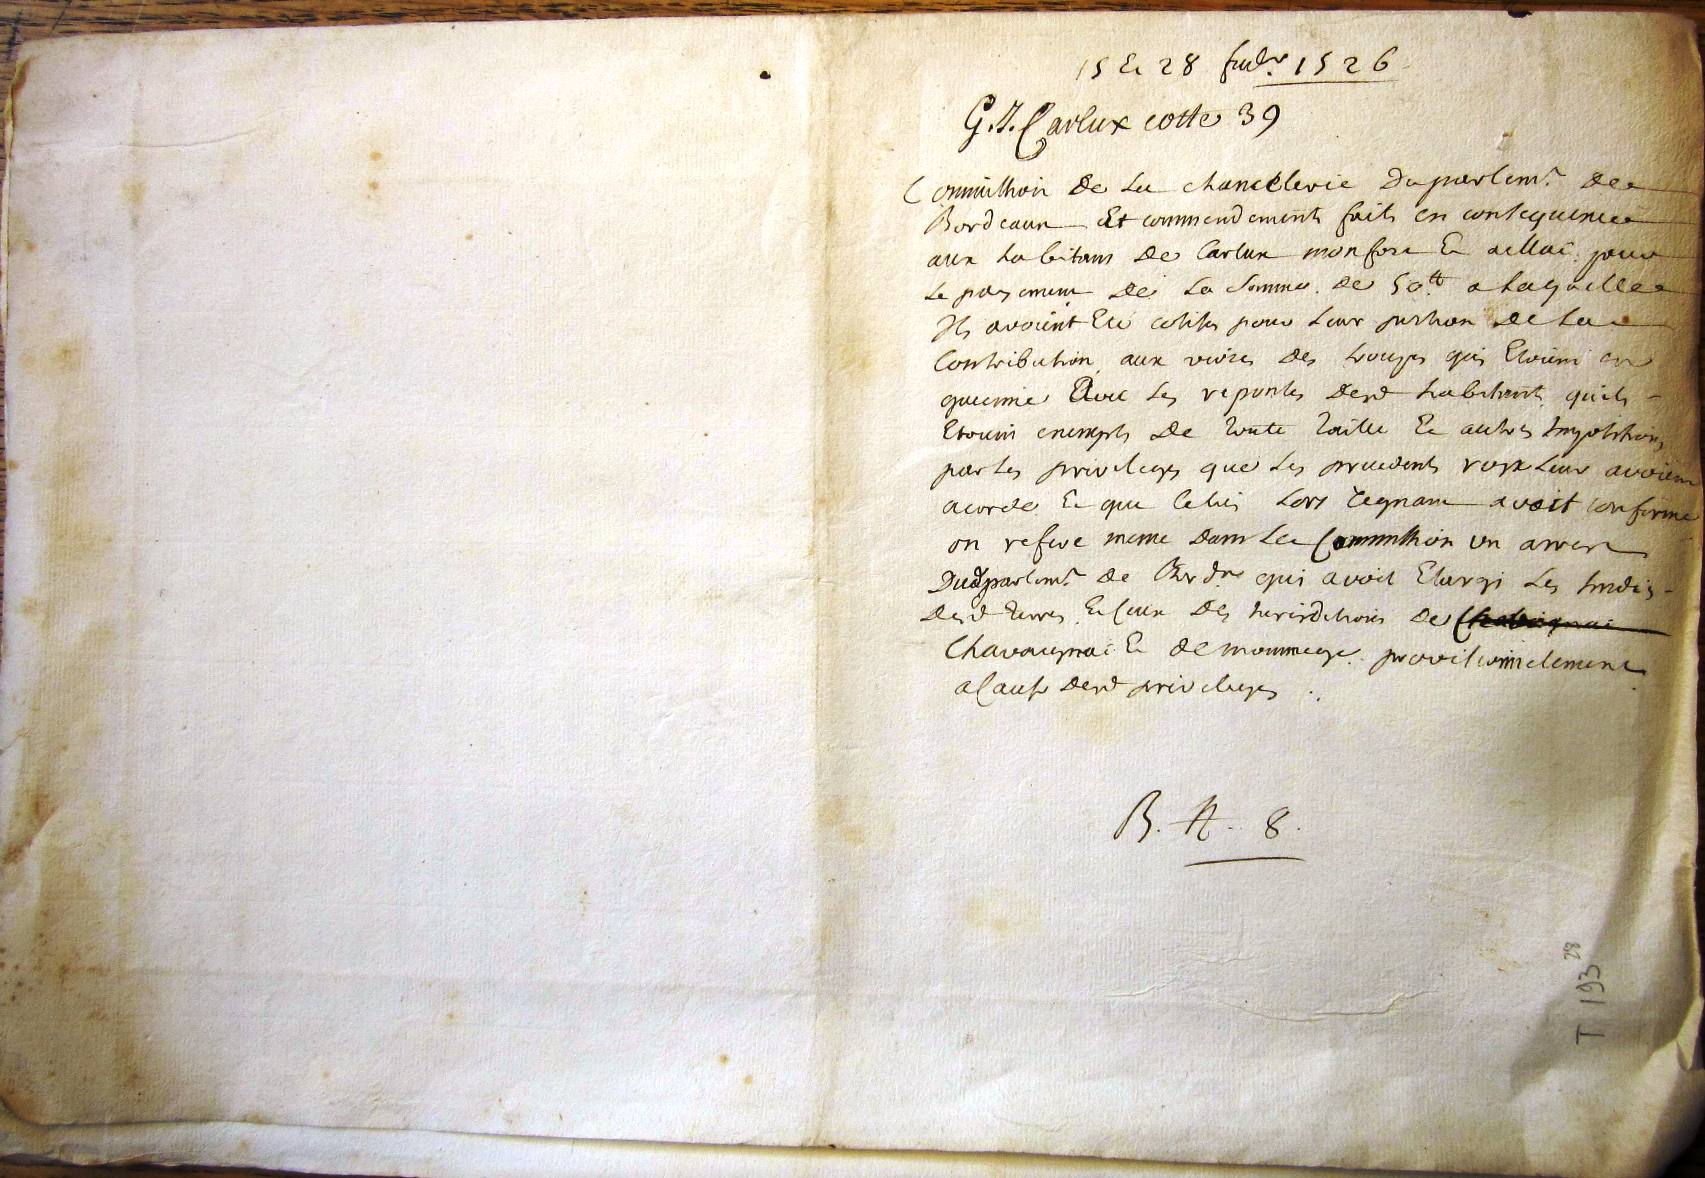 15 Et 28 1526
G.J. Carlux cotte 39
Commission de La chancelerie Du parlemt. de
Bordeaux Et commendements faits en consequence
aux habitans de Carlux monfort Et aillac pour
Le payement de La somme de 50tt a laquelle
Ils avoient Eté cotisés pour Leur portion de La
Contribution aux vivres des troupes qui Etoient en
guienne Avec Les reponses desd habitants quils
Etoient exempts de toute Taille Et autres Impositions
par les privileges que Les precedents roys Leur avoient
acordé Et que Celui Lors regnant avoit confirmé
on refere meme dans La Commission un arrest
Dud parlemt. de Bordx qui avoit Elargi Les sindics
desd terres Et Ceux des Jurisdictions de
Chavagnac Et de provisionnelement
a Cause desd privileges .
B. A. 8.
T 193 28